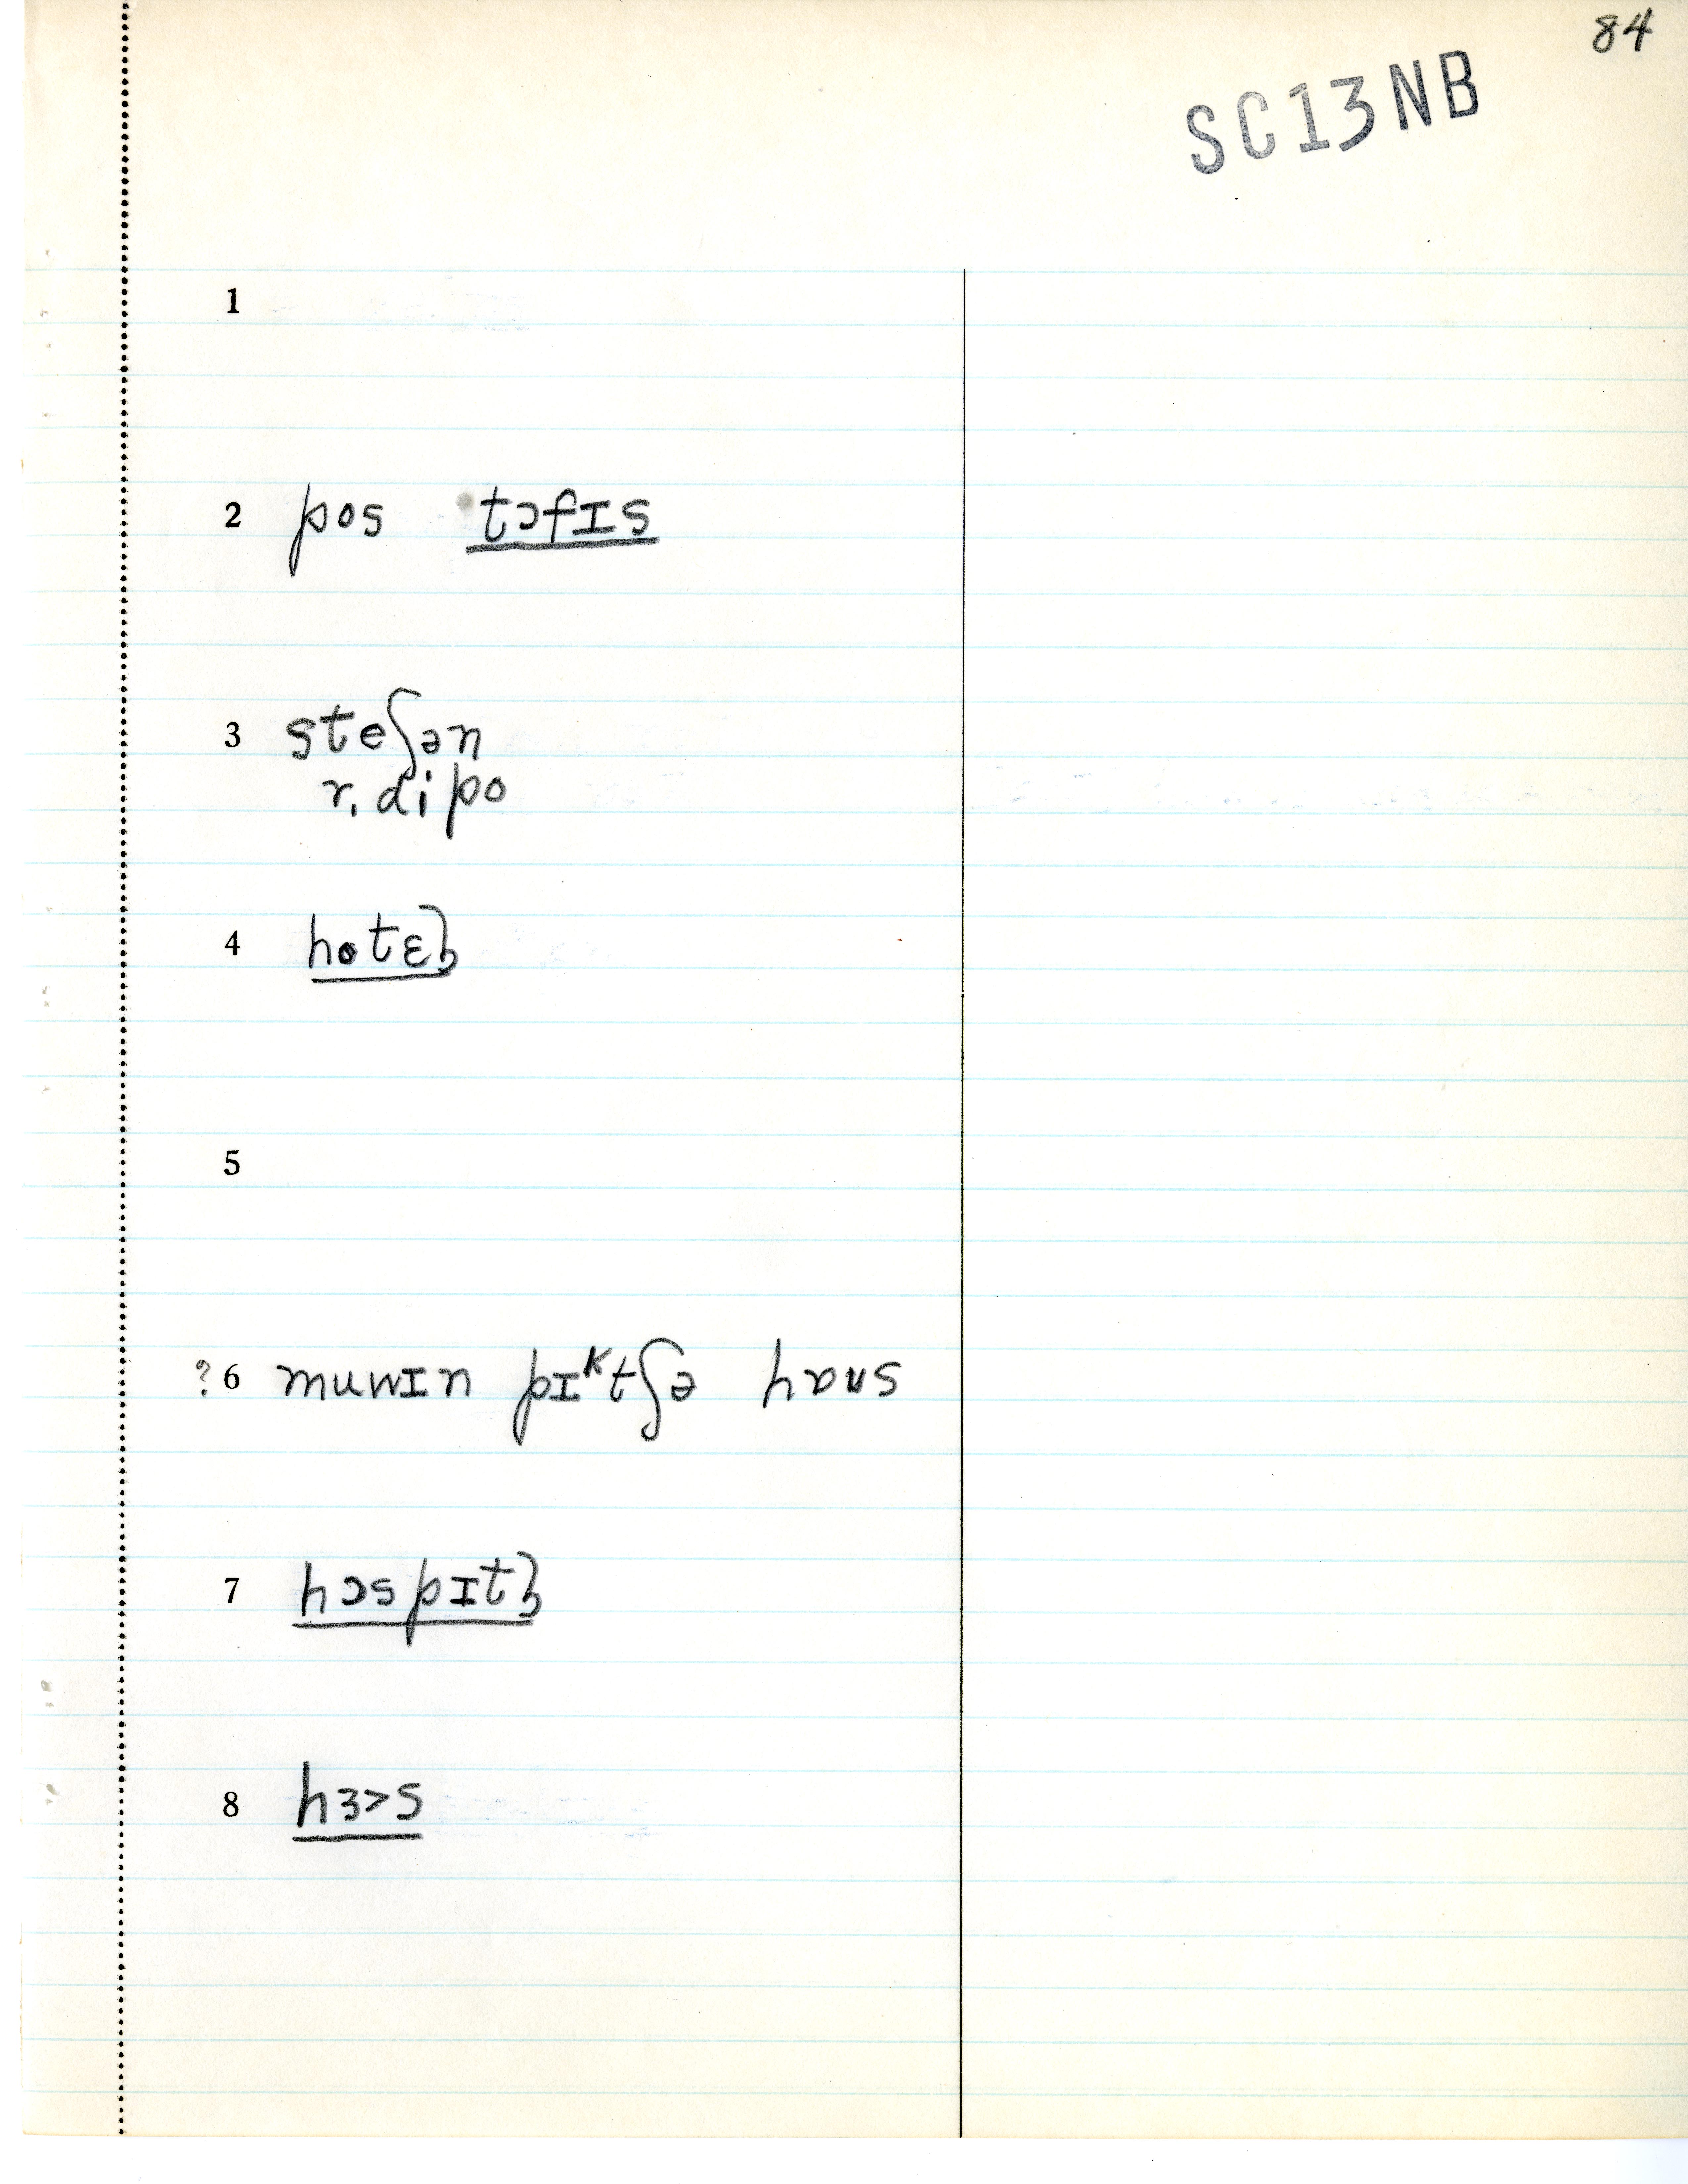 84
SC13NB
1
2 pos tɔfɪs
3 steʃən
r. dipo
4 hotɛɫ
5
? 6 muwɪn pɪᵏtʃə haus
7 hɔspɪtɫ
8 hɜ>s